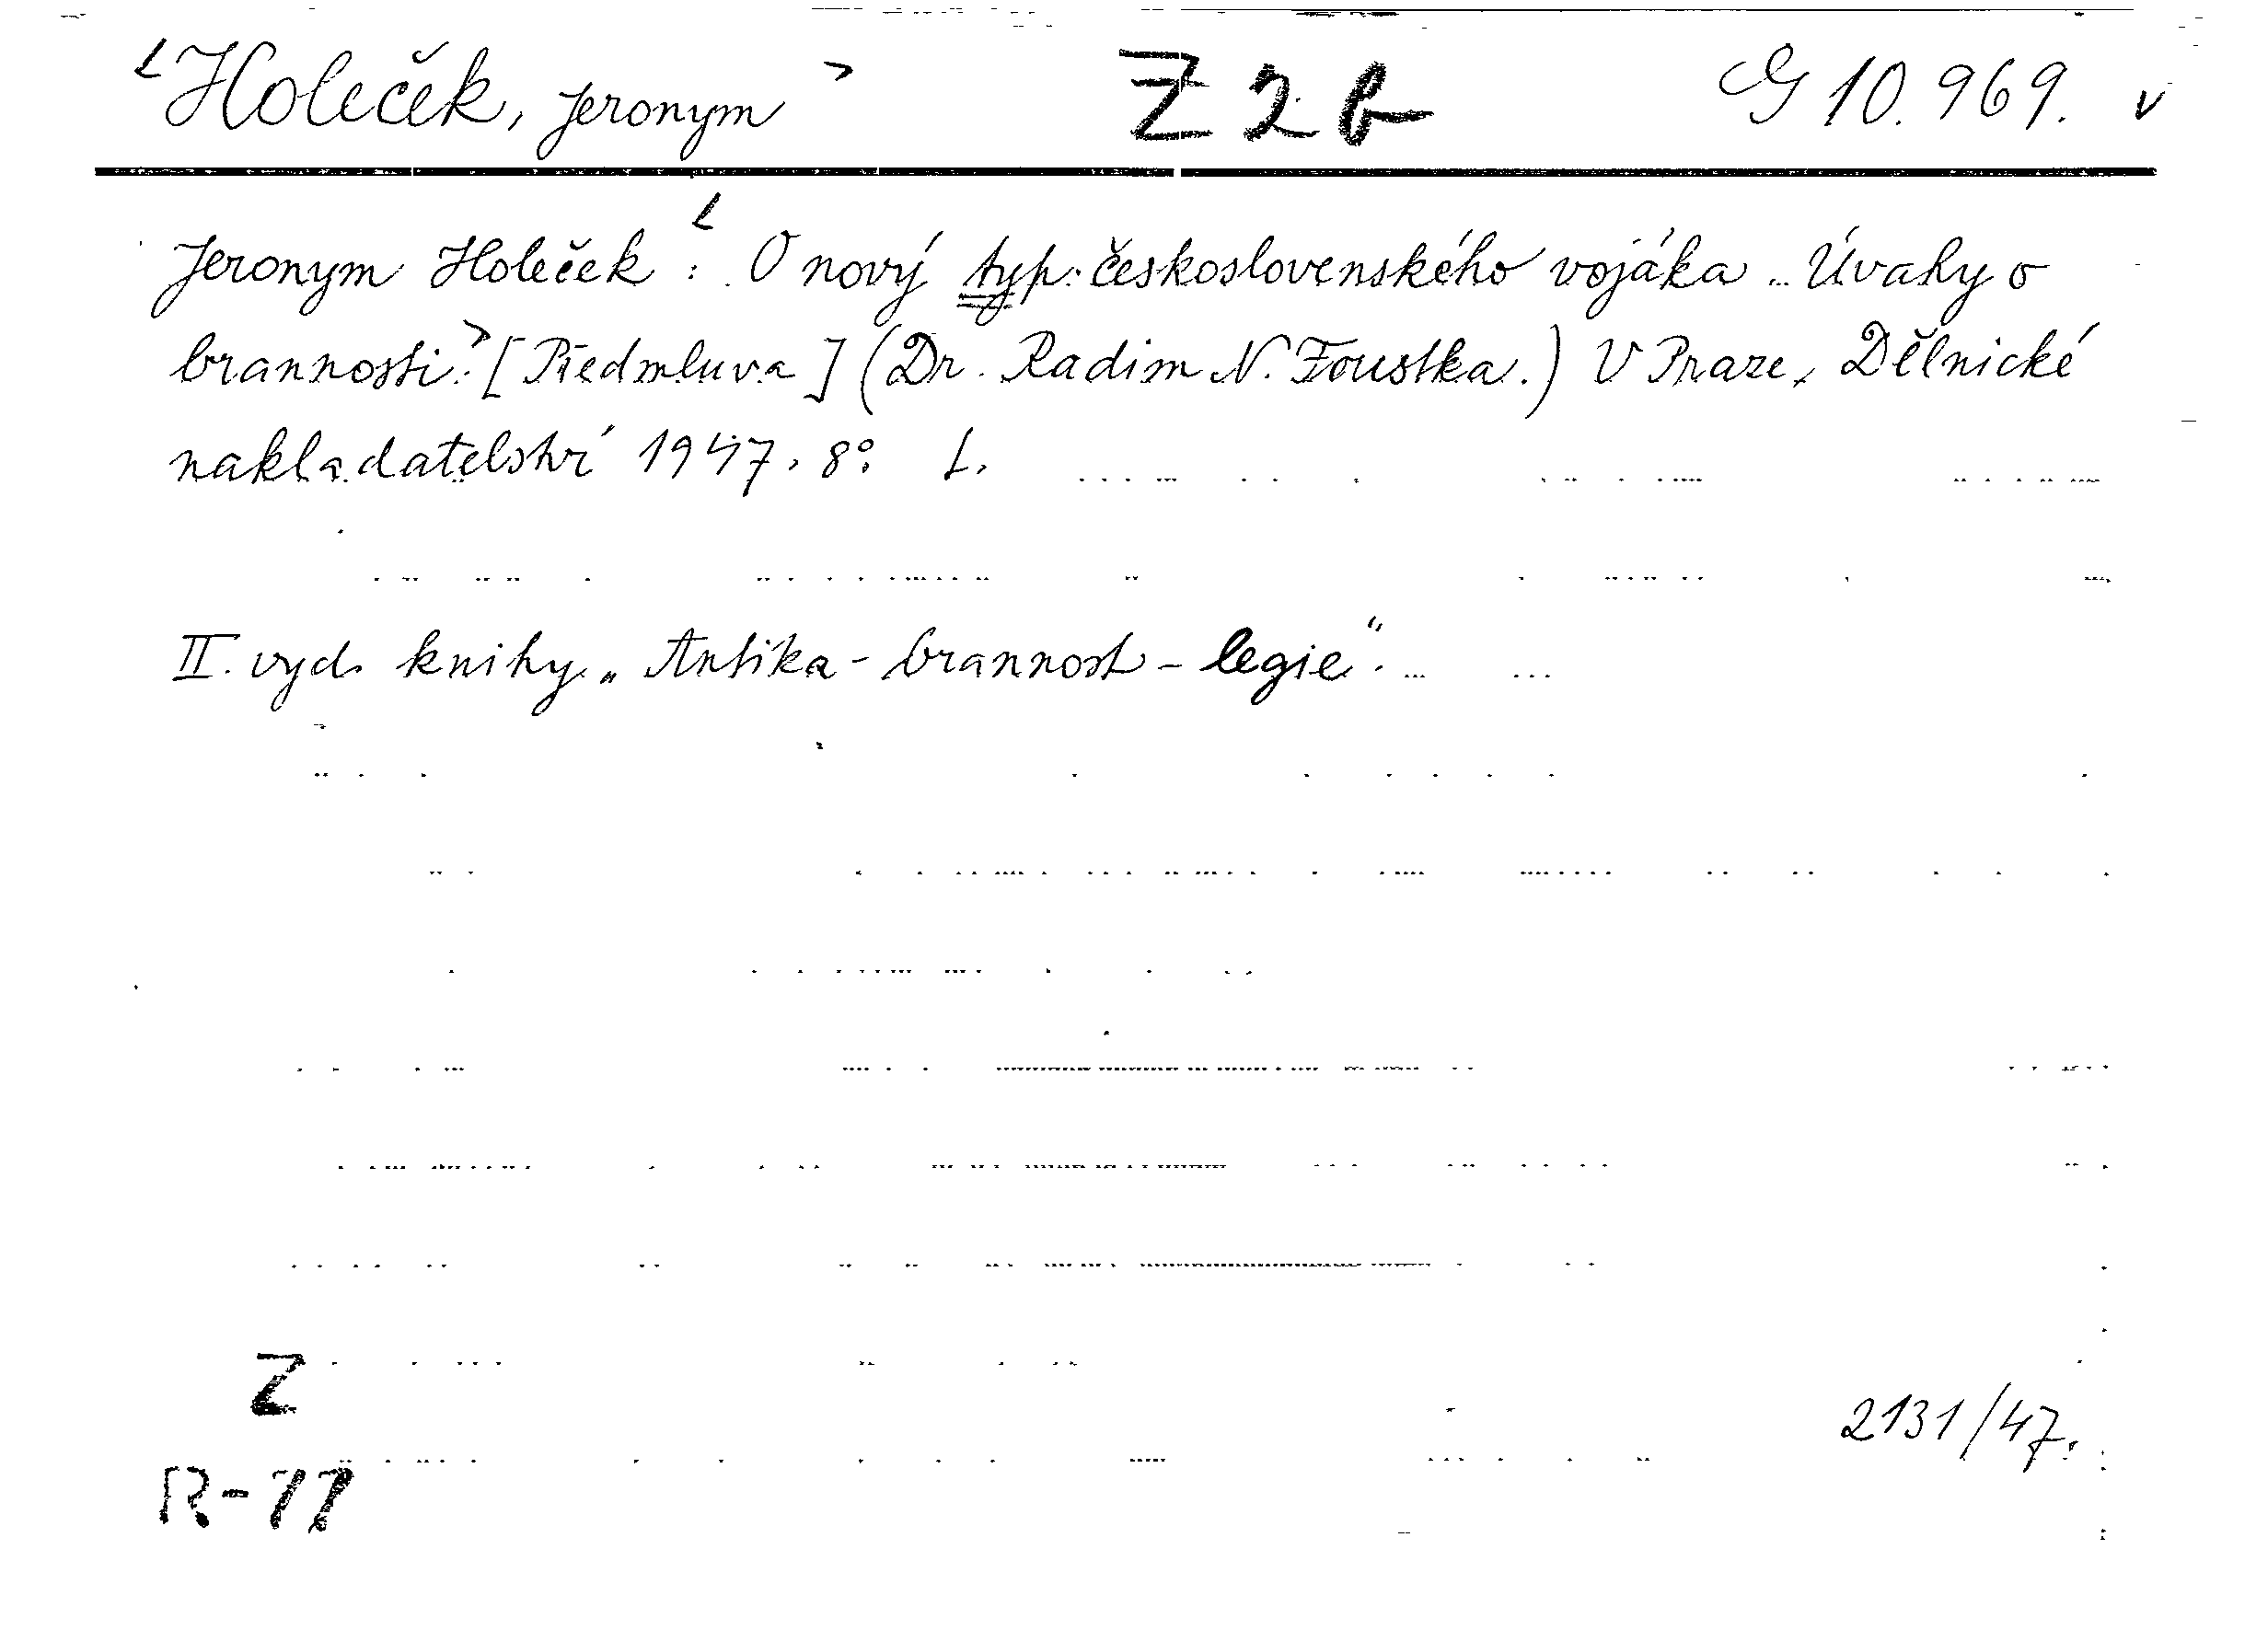 <Holeček, Jeronym> Z 2 b G 10.969. v
Jeronym Holeček: <O nový typ československého vojáka. Úvahy o
brannosti.> [Předmluva] (Dr. Radim N. Foustka.) V Praze, Dělnické
nakladatelství 1947. 8°. L.
II. vyd. knihy „Antika - brannost - legie“.
Z
2131/47.
R-77